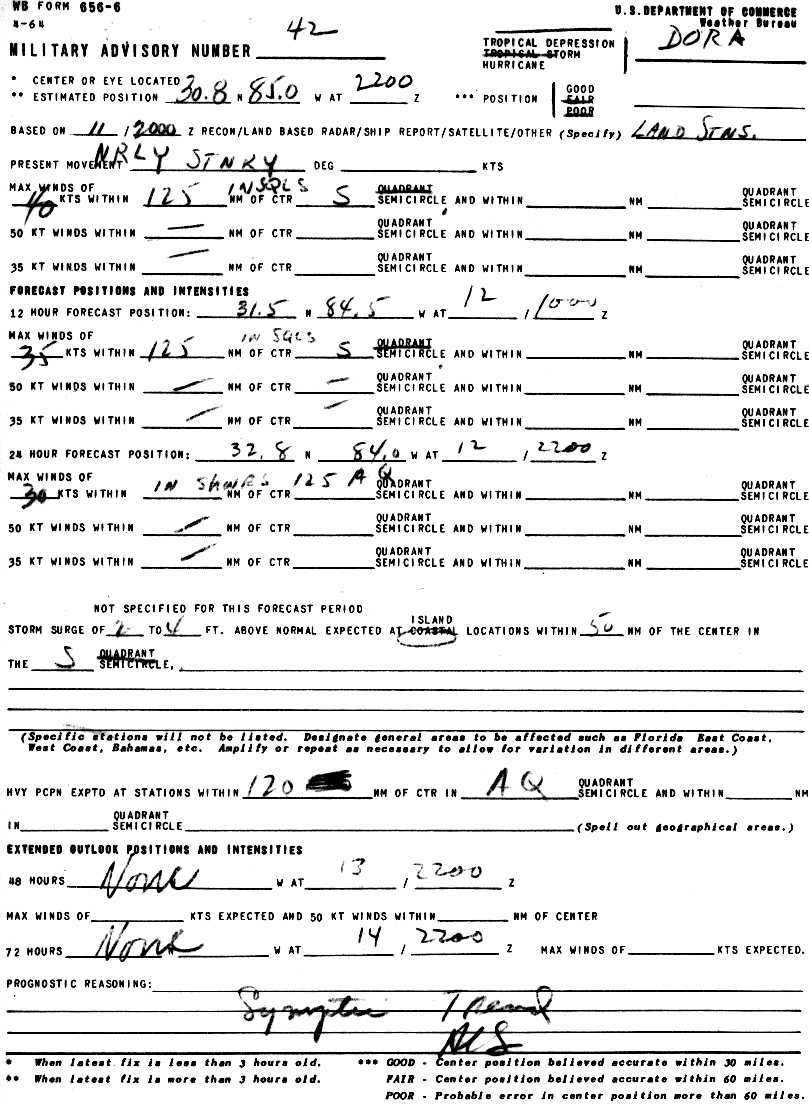 WB FORM 656-6
4-64
U.S. DEPARTMENT OF COMMERCE
Weather Bureau
MILITARY ADVISORY NUMBER 42
TROPICAL DEPRESSION
TROPICAL STORM
HURRICANE
DORA
* CENTER OR EYE LOCATED
** ESTIMATED POSITION 30.8 N 85.0 W AT 2200 Z *** POSITION GOOD FAIR POOR
BASED ON 11 / 2000 Z RECON/LAND BASED RADAR/SHIP REPORT/SATELLITE/OTHER (Specify) LAND STNS.
PRESENT MOVEMENT NRLY STNRY DEG KTS
MAX WINDS OF
40 KTS WITHIN 125 IN SQLS NM OF CTR S QUADRANT SEMICIRCLE AND WITHIN NM QUADRANT SEMICIRCLE
50 KT WINDS WITHIN — NM OF CTR QUADRANT SEMICIRCLE AND WITHIN NM QUADRANT SEMICIRCLE
35 KT WINDS WITHIN — NM OF CTR QUADRANT SEMICIRCLE AND WITHIN NM QUADRANT SEMICIRCLE
FORECAST POSITIONS AND INTENSITIES
12 HOUR FORECAST POSITION: 31.5 N 84.5 W AT 12 / 1000 Z
MAX WINDS OF
35 KTS WITHIN 125 IN SQLS NM OF CTR S QUADRANT SEMICIRCLE AND WITHIN NM QUADRANT SEMICIRCLE
50 KT WINDS WITHIN — NM OF CTR — QUADRANT SEMICIRCLE AND WITHIN NM QUADRANT SEMICIRCLE
35 KT WINDS WITHIN — NM OF CTR — QUADRANT SEMICIRCLE AND WITHIN NM QUADRANT SEMICIRCLE
24 HOUR FORECAST POSITION: 32.8 N 84.0 W AT 12 / 2200 Z
MAX WINDS OF
30 KTS WITHIN IN SHWRS 125 NM OF CTR AQ QUADRANT SEMICIRCLE AND WITHIN NM QUADRANT SEMICIRCLE
50 KT WINDS WITHIN — NM OF CTR QUADRANT SEMICIRCLE AND WITHIN NM QUADRANT SEMICIRCLE
35 KT WINDS WITHIN — NM OF CTR QUADRANT SEMICIRCLE AND WITHIN NM QUADRANT SEMICIRCLE
NOT SPECIFIED FOR THIS FORECAST PERIOD
STORM SURGE OF 2 TO 4 FT. ABOVE NORMAL EXPECTED AT ISLAND COASTAL LOCATIONS WITHIN 50 NM OF THE CENTER IN
THE S QUADRANT SEMICIRCLE,
(Specific stations will not be listed. Designate general areas to be affected such as Florida East Coast,
West Coast, Bahamas, etc. Amplify or repeat as necessary to allow for variation in different areas.)
HVY PCPN EXPTD AT STATIONS WITHIN 120 NM OF CTR IN AQ QUADRANT SEMICIRCLE AND WITHIN NM
IN QUADRANT SEMICIRCLE (Spell out geographical areas.)
EXTENDED OUTLOOK POSITIONS AND INTENSITIES
48 HOURS None W AT 13 / 2200 Z
MAX WINDS OF KTS EXPECTED AND 50 KT WINDS WITHIN NM OF CENTER
72 HOURS None W AT 14 / 2200 Z MAX WINDS OF KTS EXPECTED.
PROGNOSTIC REASONING:
Synoptic Trend
* When latest fix is less than 3 hours old.
** When latest fix is more than 3 hours old.
*** GOOD - Center position believed accurate within 30 miles.
FAIR - Center position believed accurate within 60 miles.
POOR - Probable error in center position more than 60 miles.